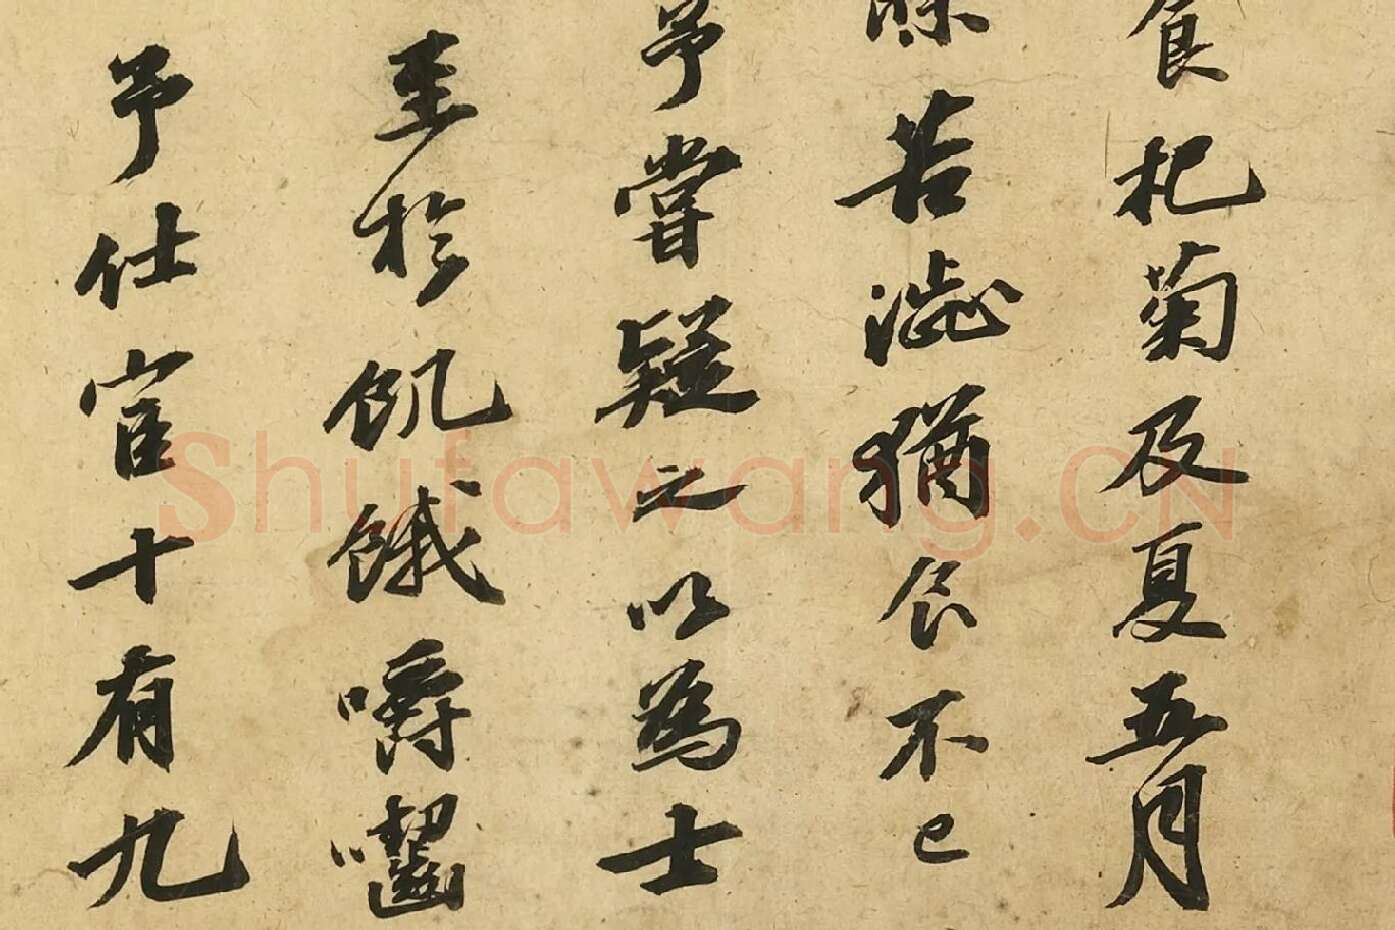 食杞菊及夏五月
味苦澁猶食不已
予嘗疑之以為士
至於飢餓嚼囓
予仕宦十有九
Shufawang.CN